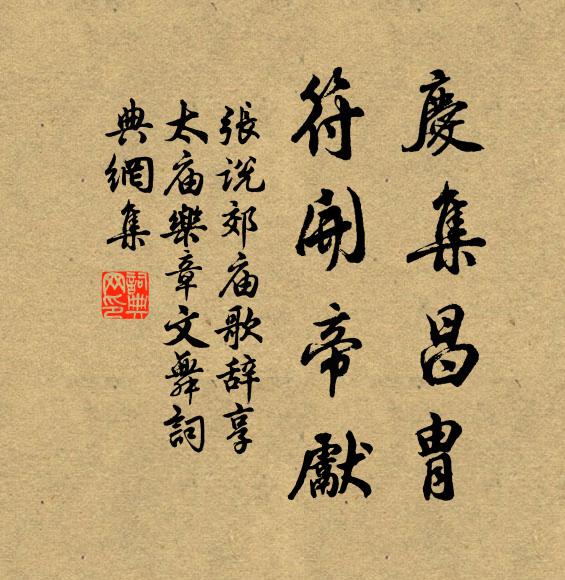 慶集昌冑
符開帝獻
張說郊庙歌辞享
太庙樂章文舞詞
典網集
詞典網印